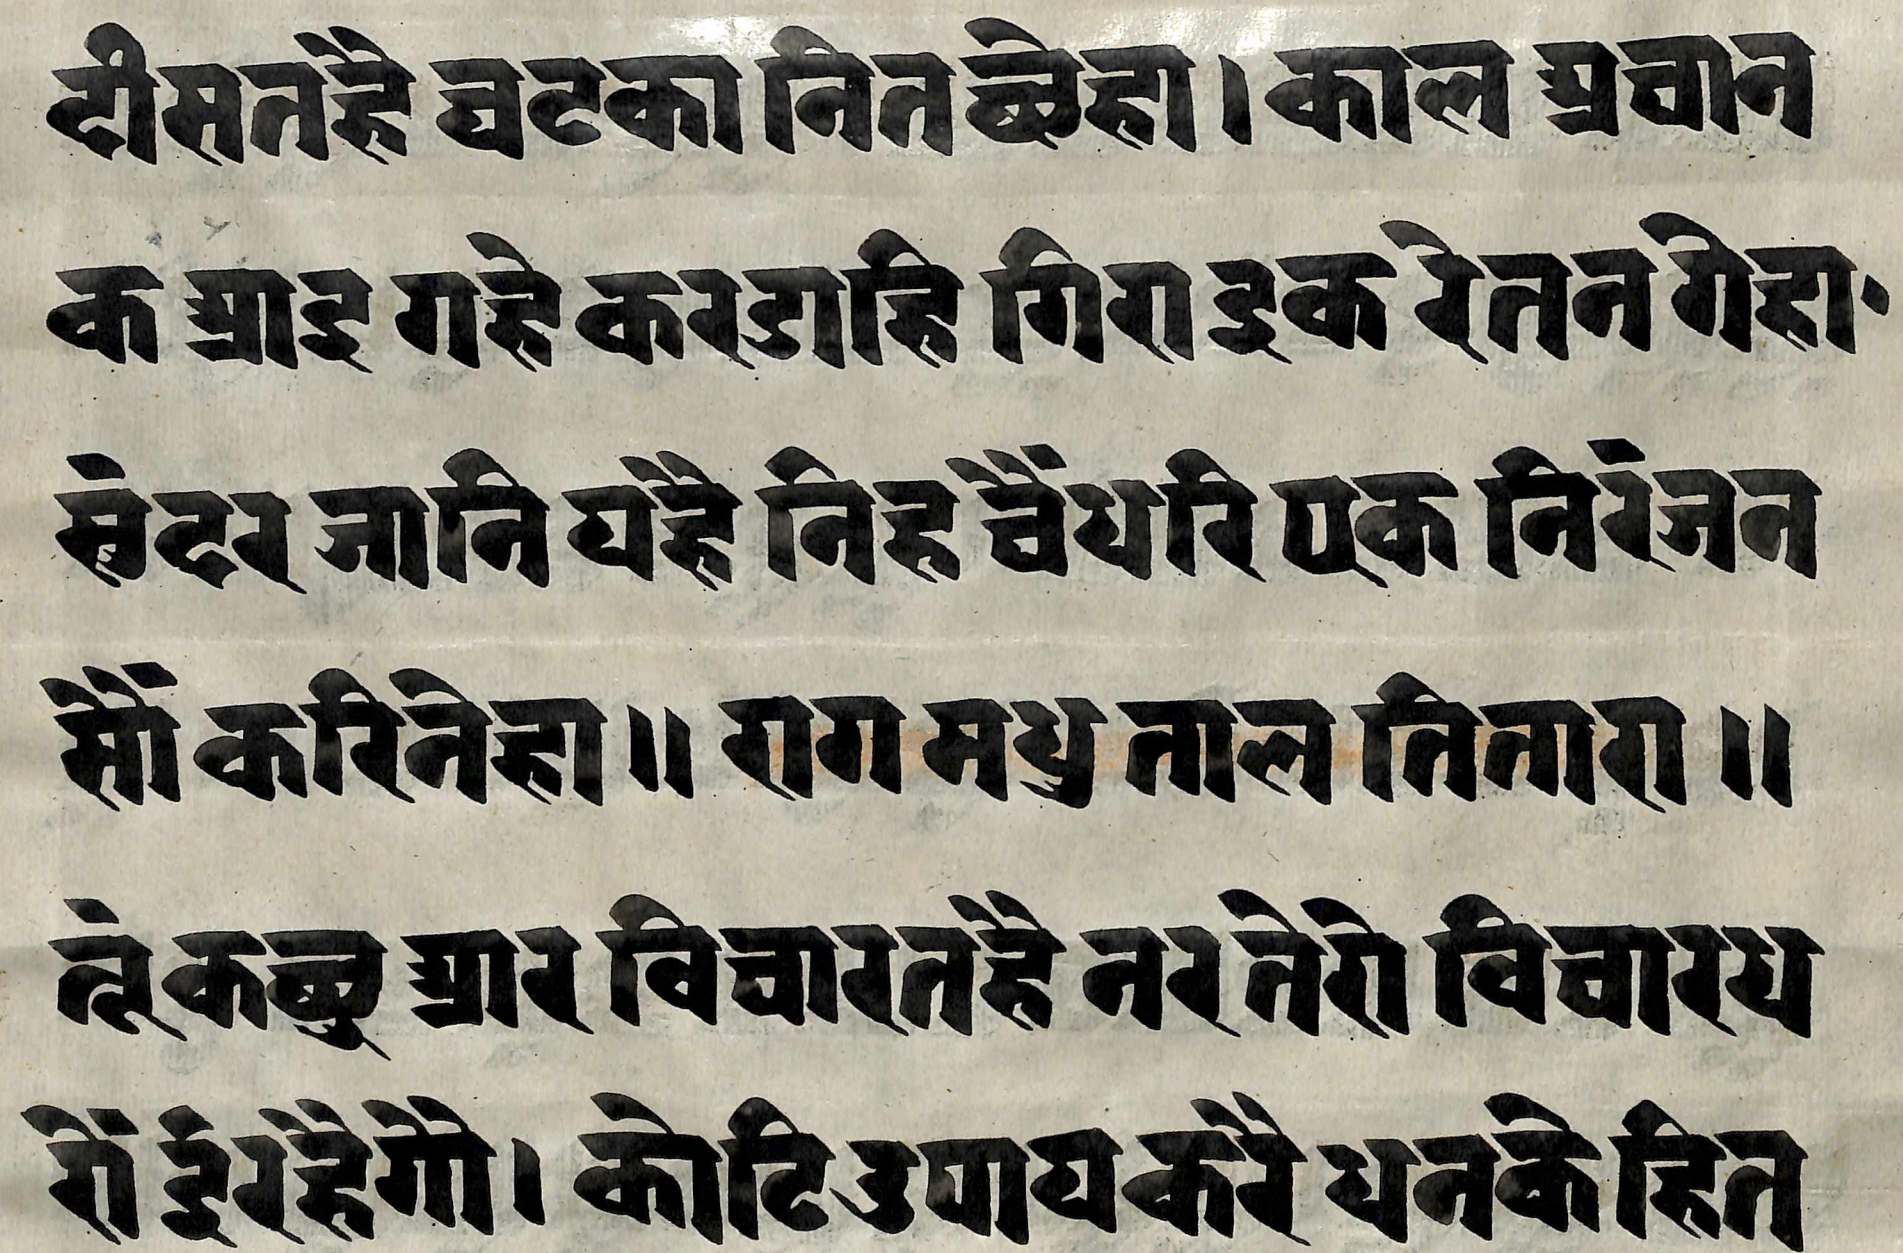 दीसतहै घटका नित छेहा। काल अचान
क आइ गहै करडाहि गिराइक रेतन गेहा॰
सुंदर जानि यहै निह चैंधरि एक निरंजन
सौं करिनेहा॥ राग मधु ताल तितारा॥
तूं कछु आर विचारतहै नर तेरो विचारध
रों ईं रहैगौ। कोटि उपाय करै धनके हित